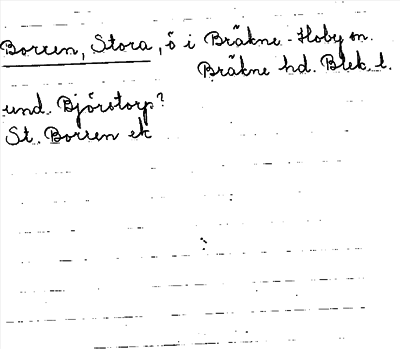 Borren, Stora, ö i Bräkne-Hoby sn.
Bräkne hd. Blek. l.
und. Björstorp?
St. Borren ek